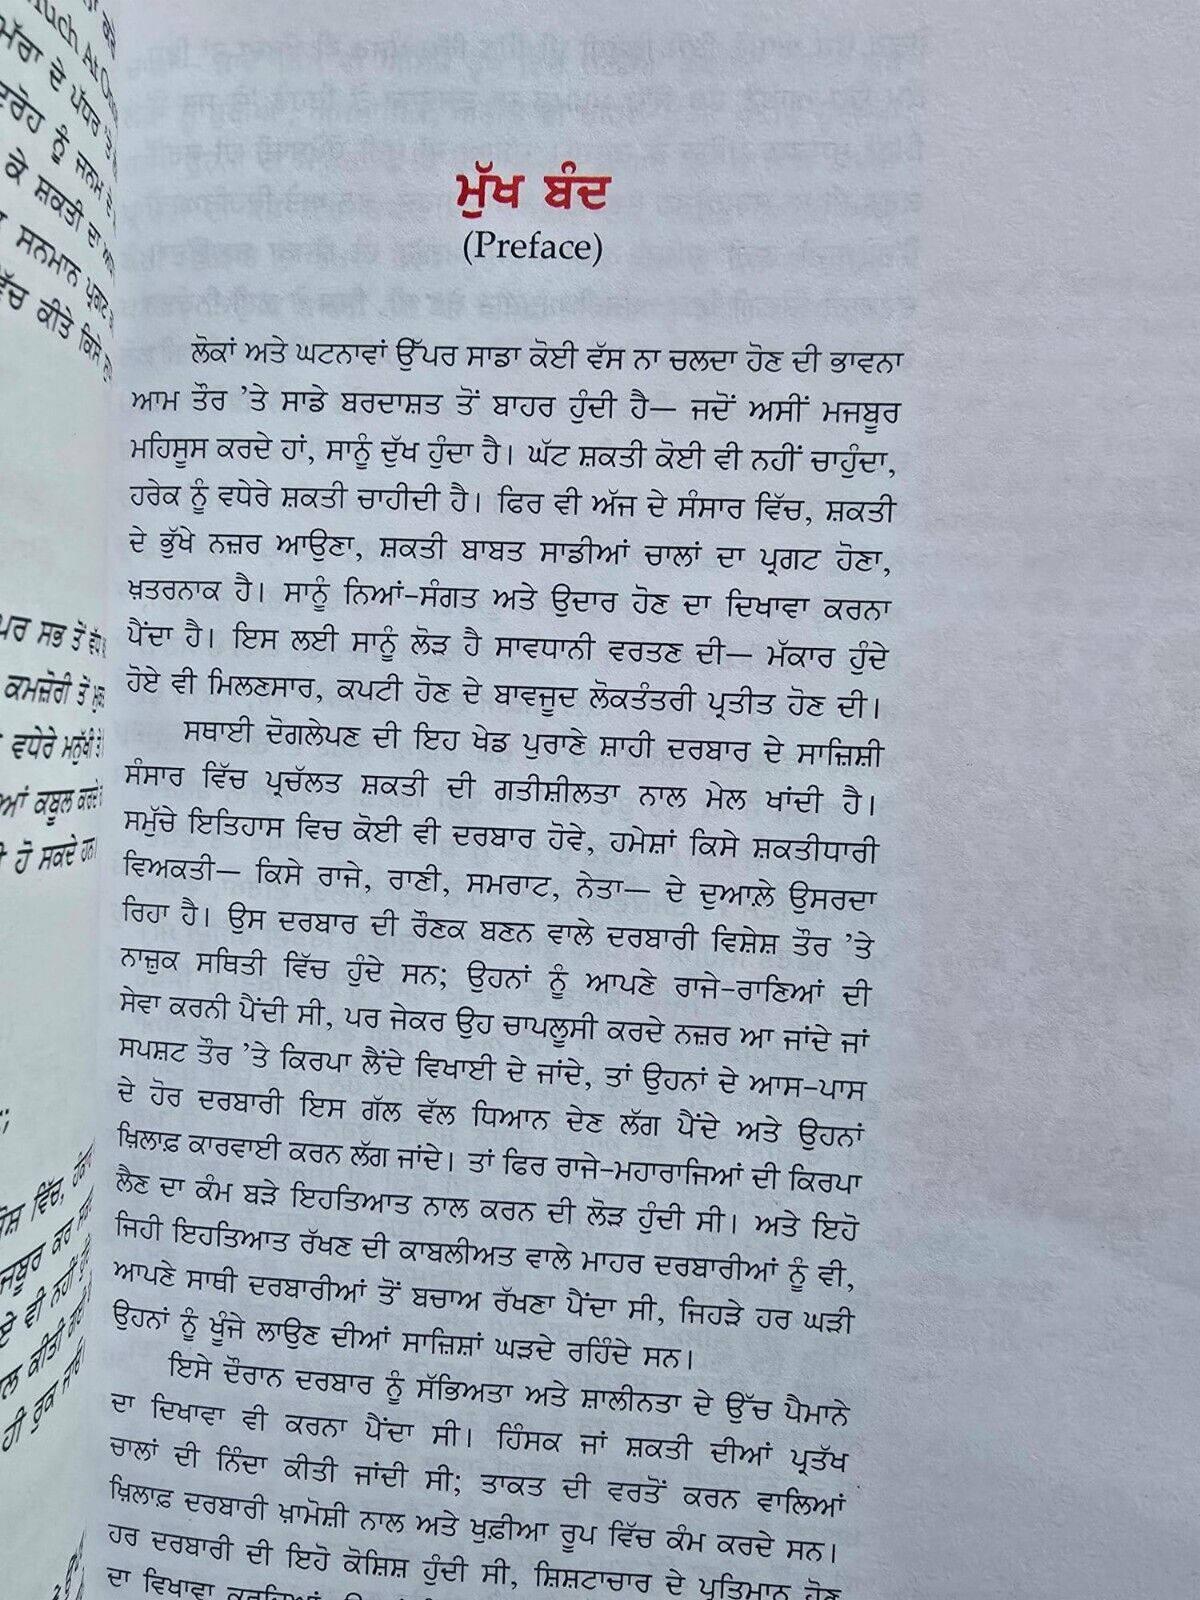 ਮੁੱਖ ਬੰਦ
(Preface)
ਲੋਕਾਂ ਅਤੇ ਘਟਨਾਵਾਂ ਉੱਪਰ ਸਾਡਾ ਕੋਈ ਵੱਸ ਨਾ ਚਲਦਾ ਹੋਣ ਦੀ ਭਾਵਨਾ
ਆਮ ਤੌਰ ’ਤੇ ਸਾਡੇ ਬਰਦਾਸ਼ਤ ਤੋਂ ਬਾਹਰ ਹੁੰਦੀ ਹੈ— ਜਦੋਂ ਅਸੀਂ ਮਜਬੂਰ
ਮਹਿਸੂਸ ਕਰਦੇ ਹਾਂ, ਸਾਨੂੰ ਦੁੱਖ ਹੁੰਦਾ ਹੈ। ਘੱਟ ਸ਼ਕਤੀ ਕੋਈ ਵੀ ਨਹੀਂ ਚਾਹੁੰਦਾ,
ਹਰੇਕ ਨੂੰ ਵਧੇਰੇ ਸ਼ਕਤੀ ਚਾਹੀਦੀ ਹੈ। ਫਿਰ ਵੀ ਅੱਜ ਦੇ ਸੰਸਾਰ ਵਿੱਚ, ਸ਼ਕਤੀ
ਦੇ ਭੁੱਖੇ ਨਜ਼ਰ ਆਉਣਾ, ਸ਼ਕਤੀ ਬਾਬਤ ਸਾਡੀਆਂ ਚਾਲਾਂ ਦਾ ਪ੍ਰਗਟ ਹੋਣਾ,
ਖ਼ਤਰਨਾਕ ਹੈ। ਸਾਨੂੰ ਨਿਆਂ-ਸੰਗਤ ਅਤੇ ਉਦਾਰ ਹੋਣ ਦਾ ਦਿਖਾਵਾ ਕਰਨਾ
ਪੈਂਦਾ ਹੈ। ਇਸ ਲਈ ਸਾਨੂੰ ਲੋੜ ਹੈ ਸਾਵਧਾਨੀ ਵਰਤਣ ਦੀ— ਮੱਕਾਰ ਹੁੰਦੇ
ਹੋਏ ਵੀ ਮਿਲਣਸਾਰ, ਕਪਟੀ ਹੋਣ ਦੇ ਬਾਵਜੂਦ ਲੋਕਤੰਤਰੀ ਪ੍ਰਤੀਤ ਹੋਣ ਦੀ।
ਸਥਾਈ ਦੋਗਲੇਪਣ ਦੀ ਇਹ ਖੇਡ ਪੁਰਾਣੇ ਸ਼ਾਹੀ ਦਰਬਾਰ ਦੇ ਸਾਜ਼ਿਸ਼ੀ
ਸੰਸਾਰ ਵਿੱਚ ਪ੍ਰਚੱਲਤ ਸ਼ਕਤੀ ਦੀ ਗਤੀਸ਼ੀਲਤਾ ਨਾਲ ਮੇਲ ਖਾਂਦੀ ਹੈ।
ਸਮੁੱਚੇ ਇਤਿਹਾਸ ਵਿਚ ਕੋਈ ਵੀ ਦਰਬਾਰ ਹੋਵੇ, ਹਮੇਸ਼ਾਂ ਕਿਸੇ ਸ਼ਕਤੀਧਾਰੀ
ਵਿਅਕਤੀ— ਕਿਸੇ ਰਾਜੇ, ਰਾਣੀ, ਸਮਰਾਟ, ਨੇਤਾ— ਦੇ ਦੁਆਲ਼ੇ ਉਸਰਦਾ
ਰਿਹਾ ਹੈ। ਉਸ ਦਰਬਾਰ ਦੀ ਰੌਣਕ ਬਣਨ ਵਾਲੇ ਦਰਬਾਰੀ ਵਿਸ਼ੇਸ਼ ਤੌਰ ’ਤੇ
ਨਾਜ਼ੁਕ ਸਥਿਤੀ ਵਿੱਚ ਹੁੰਦੇ ਸਨ; ਉਹਨਾਂ ਨੂੰ ਆਪਣੇ ਰਾਜੇ-ਰਾਣਿਆਂ ਦੀ
ਸੇਵਾ ਕਰਨੀ ਪੈਂਦੀ ਸੀ, ਪਰ ਜੇਕਰ ਉਹ ਚਾਪਲੂਸੀ ਕਰਦੇ ਨਜ਼ਰ ਆ ਜਾਂਦੇ ਜਾਂ
ਸਪਸ਼ਟ ਤੌਰ ’ਤੇ ਕਿਰਪਾ ਲੈਂਦੇ ਵਿਖਾਈ ਦੇ ਜਾਂਦੇ, ਤਾਂ ਉਹਨਾਂ ਦੇ ਆਸ-ਪਾਸ
ਦੇ ਹੋਰ ਦਰਬਾਰੀ ਇਸ ਗੱਲ ਵੱਲ ਧਿਆਨ ਦੇਣ ਲੱਗ ਪੈਂਦੇ ਅਤੇ ਉਹਨਾਂ
ਖ਼ਿਲਾਫ਼ ਕਾਰਵਾਈ ਕਰਨ ਲੱਗ ਜਾਂਦੇ। ਤਾਂ ਫਿਰ ਰਾਜੇ-ਮਹਾਰਾਜਿਆਂ ਦੀ ਕਿਰਪਾ
ਲੈਣ ਦਾ ਕੰਮ ਬੜੇ ਇਹਤਿਆਤ ਨਾਲ ਕਰਨ ਦੀ ਲੋੜ ਹੁੰਦੀ ਸੀ। ਅਤੇ ਇਹੋ
ਜਿਹੀ ਇਹਤਿਆਤ ਰੱਖਣ ਦੀ ਕਾਬਲੀਅਤ ਵਾਲੇ ਮਾਹਰ ਦਰਬਾਰੀਆਂ ਨੂੰ ਵੀ,
ਆਪਣੇ ਸਾਥੀ ਦਰਬਾਰੀਆਂ ਤੋਂ ਬਚਾਅ ਰੱਖਣਾ ਪੈਂਦਾ ਸੀ, ਜਿਹੜੇ ਹਰ ਘੜੀ
ਉਹਨਾਂ ਨੂੰ ਖੂੰਜੇ ਲਾਉਣ ਦੀਆਂ ਸਾਜ਼ਿਸ਼ਾਂ ਘੜਦੇ ਰਹਿੰਦੇ ਸਨ।
ਇਸੇ ਦੌਰਾਨ ਦਰਬਾਰ ਨੂੰ ਸੱਭਿਅਤਾ ਅਤੇ ਸ਼ਾਲੀਨਤਾ ਦੇ ਉੱਚ ਪੈਮਾਨੇ
ਦਾ ਦਿਖਾਵਾ ਵੀ ਕਰਨਾ ਪੈਂਦਾ ਸੀ। ਹਿੰਸਕ ਜਾਂ ਸ਼ਕਤੀ ਦੀਆਂ ਪ੍ਰਤੱਖ
ਚਾਲਾਂ ਦੀ ਨਿੰਦਾ ਕੀਤੀ ਜਾਂਦੀ ਸੀ; ਤਾਕਤ ਦੀ ਵਰਤੋਂ ਕਰਨ ਵਾਲਿਆਂ
ਖ਼ਿਲਾਫ਼ ਦਰਬਾਰੀ ਖ਼ਾਮੋਸ਼ੀ ਨਾਲ ਅਤੇ ਖੁਫ਼ੀਆ ਰੂਪ ਵਿੱਚ ਕੰਮ ਕਰਦੇ ਸਨ।
ਹਰ ਦਰਬਾਰੀ ਦੀ ਇਹੋ ਕੋਸ਼ਿਸ਼ ਹੁੰਦੀ ਸੀ, ਸ਼ਿਸ਼ਟਾਚਾਰ ਦੇ ਪ੍ਰਤਿਮਾਨ ਹੋਣ
ਦਾ ਵਿਖਾਵਾ